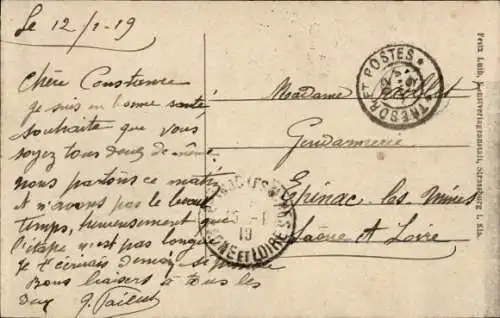 Le 12/1-19
Chère Constance
je suis en bonne santé
souhaite que vous
soyez tous deux de même
nous partons ce matin
et n'avons pas le beau
temps, heureusement que
l'étape n'est pas longue
Je t'écrirais demain si possible
Bons baisers à tous les
deux G. Paillet
Madame Paillet
Gendarmerie
Epinac les mines
Saône et Loire
TRESOR ET POSTES
EPINAC-LES-MINES
SAONE ET LOIRE
19
Felix Luib, Kunstverlagsanstalt, Strassburg i. Els.